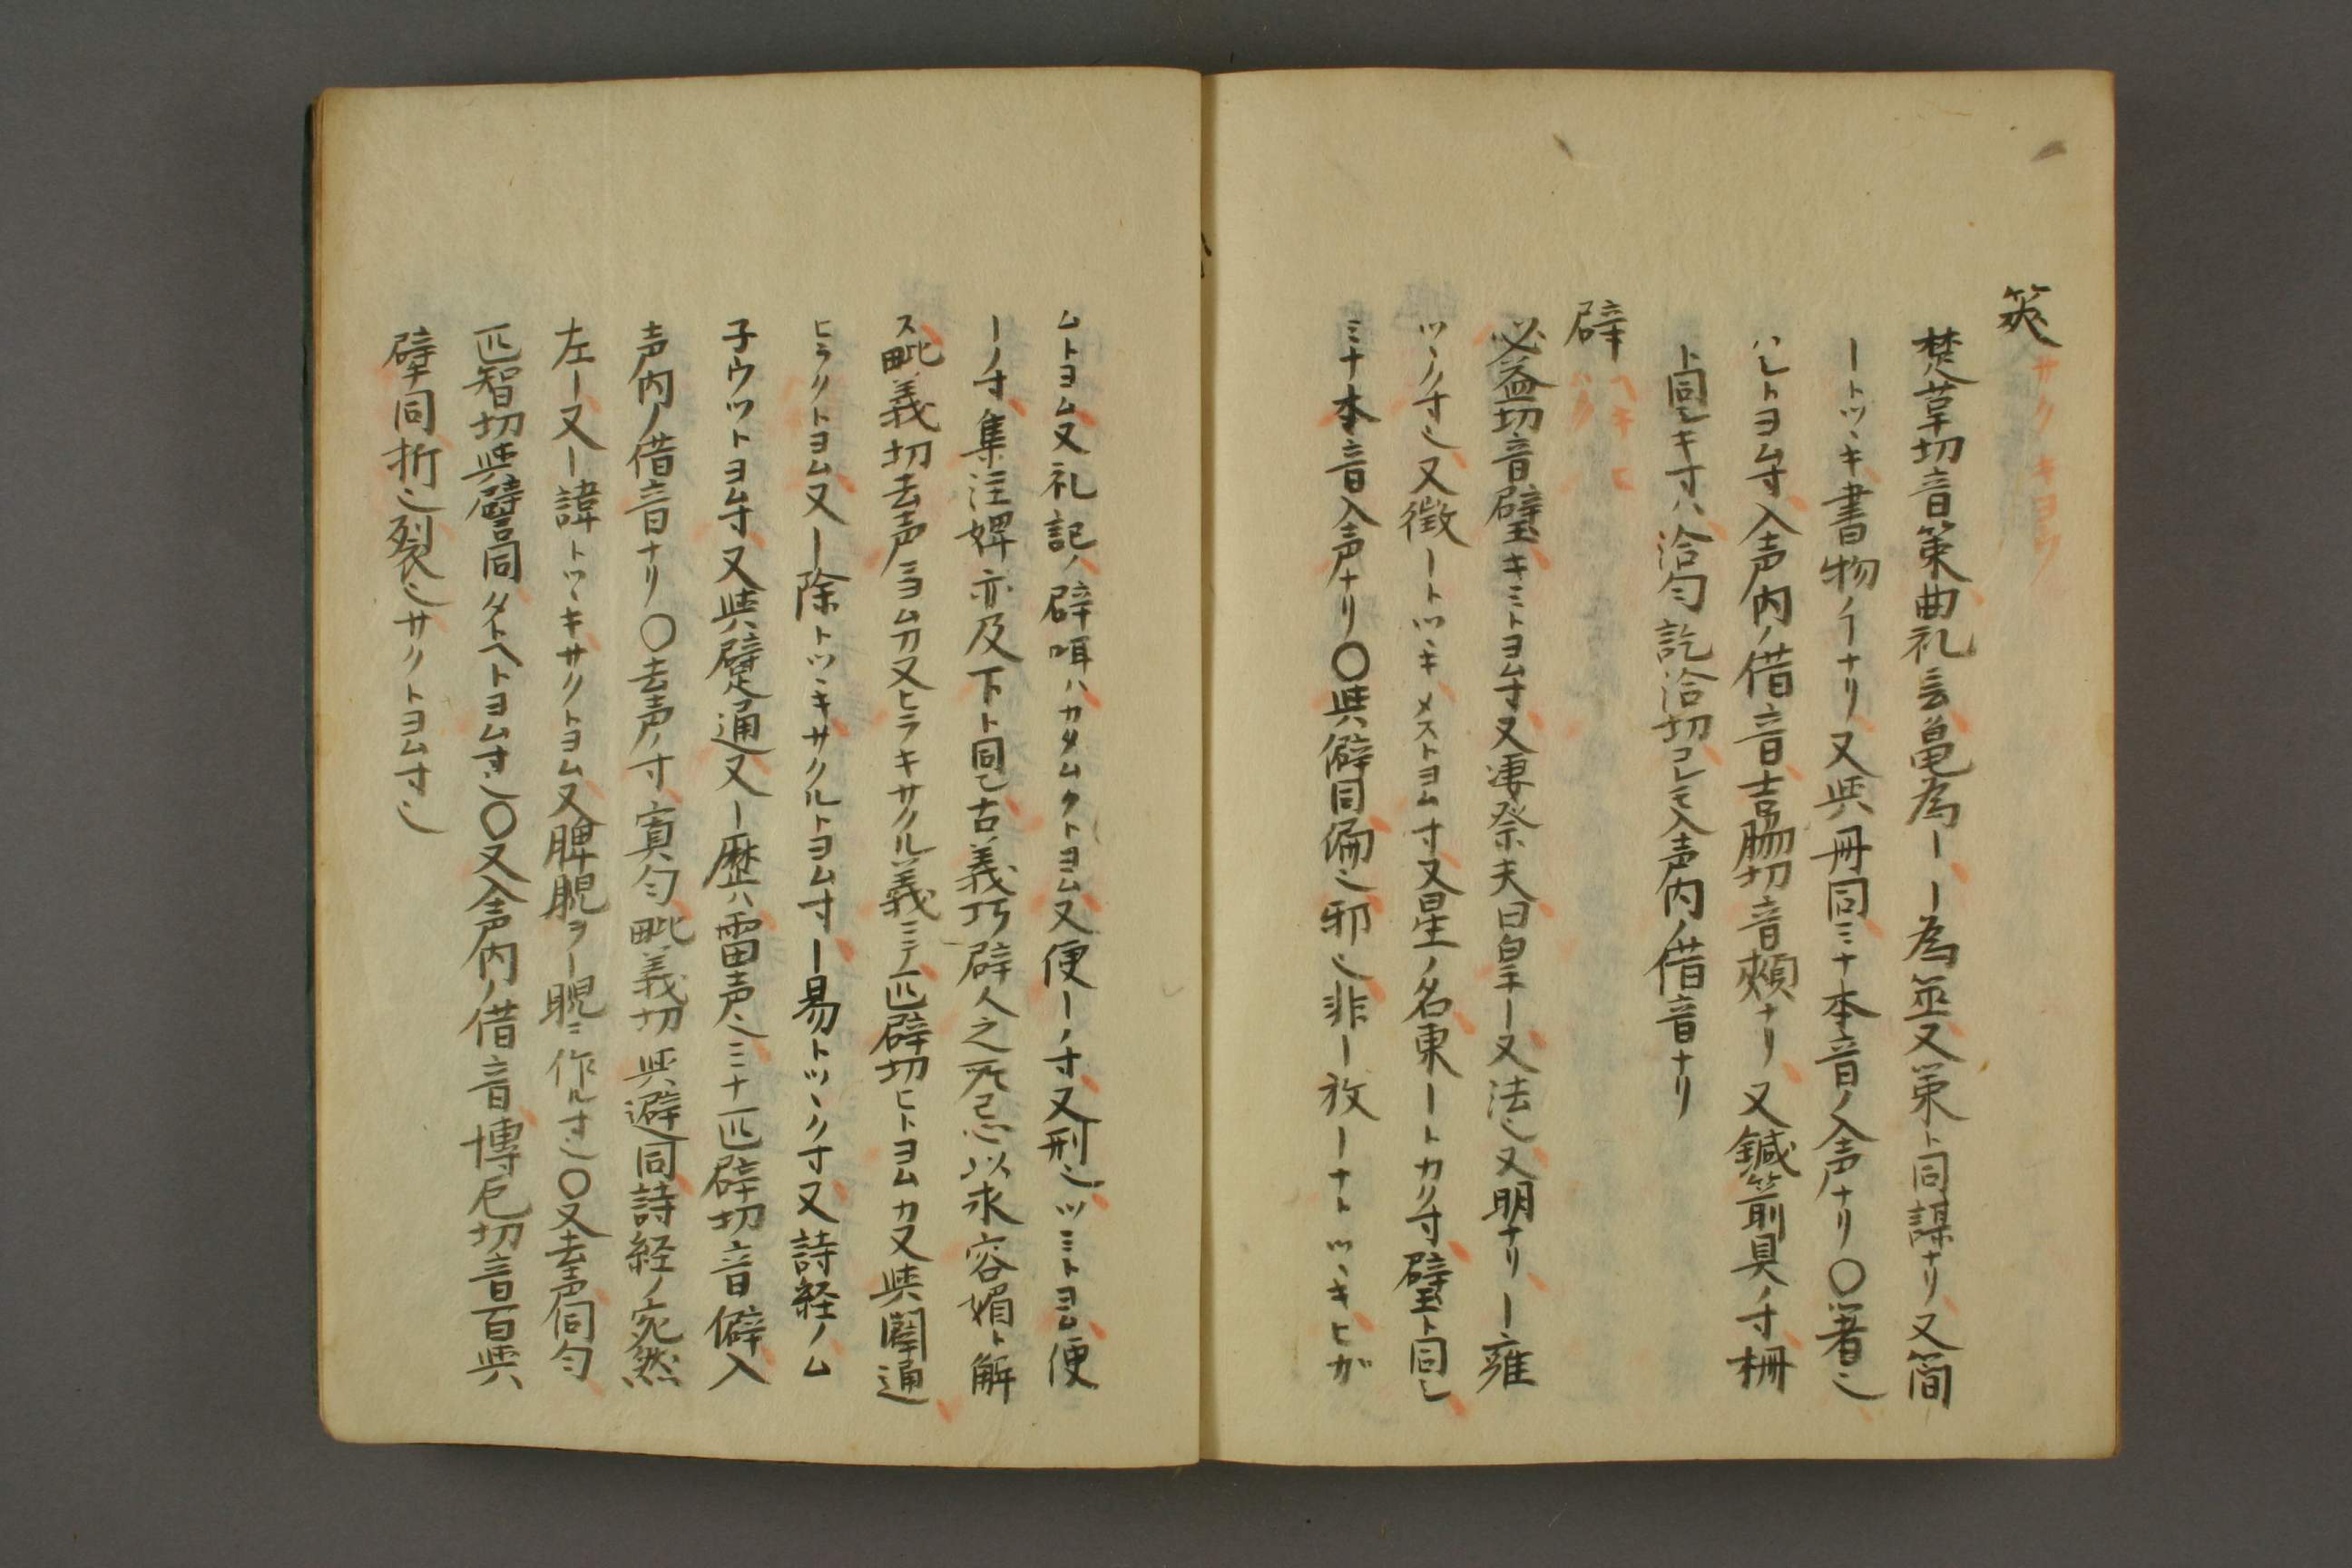 筴 サク キヨウ
楚革切音策曲礼云亀為ーー為筮又策ト同謀ナリ又簡
ートツヽキ書物ノ𬼀ナリ又與冊同ミナ本音ノ入声ナリ〇箸也
ハシトヨム寸入声内ノ借音吉脇切音頰ナリ又鍼箭具ノ寸柵
ト同シキ寸ハ洽匀訖洽切コレモ入声内ノ借音ナリ
辟 ヘキ ヒ ハク
必益切音璧キミトヨム寸又妻祭夫曰皇ー又法也又明ナリー雍
ツヽク寸也又徴ートツヽキメストヨム寸又星ノ名東ートカク寸璧ト同シ
ミナ本音入声ナリ〇與僻同偏也邪也非ー放ーナトツヽキヒガ
ムトヨム又礼記ノ辟咡ハカタムクトヨム又便ーノ寸又刑也ツミトヨム便
ーノ寸集注婢亦及下ト同シ古義巧辟人之所忌以求容媚ト解
ス毗義切去声ニヨム𬼂又ヒラキサクル義ニテ匹辟切ヒトヨムカ又與闢通
ヒラクトヨム又ー除トツヽキサクルトヨム寸ー易トツヽク寸又詩経ノム
子ウツトヨム寸又與躄通又ー歴ハ雷声也ミナ匹辟切音僻入
声内ノ借音ナリ〇去声ノ寸寘匀毗義切與避同詩経ノ宛然
左ー又ー諱トツヽキサクトヨム又脾睨ヲー睨ニ作ル寸也〇又去声同匀
匹智切與譬同タトヘトヨム寸也〇又入声内ノ借音博厄切音百與
擘同折也裂也サクトヨム寸也